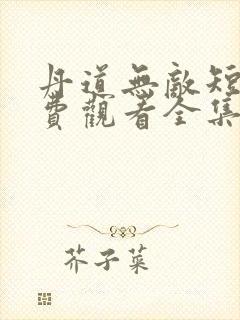 丹道無敵短
費觀看全集
芥子菜